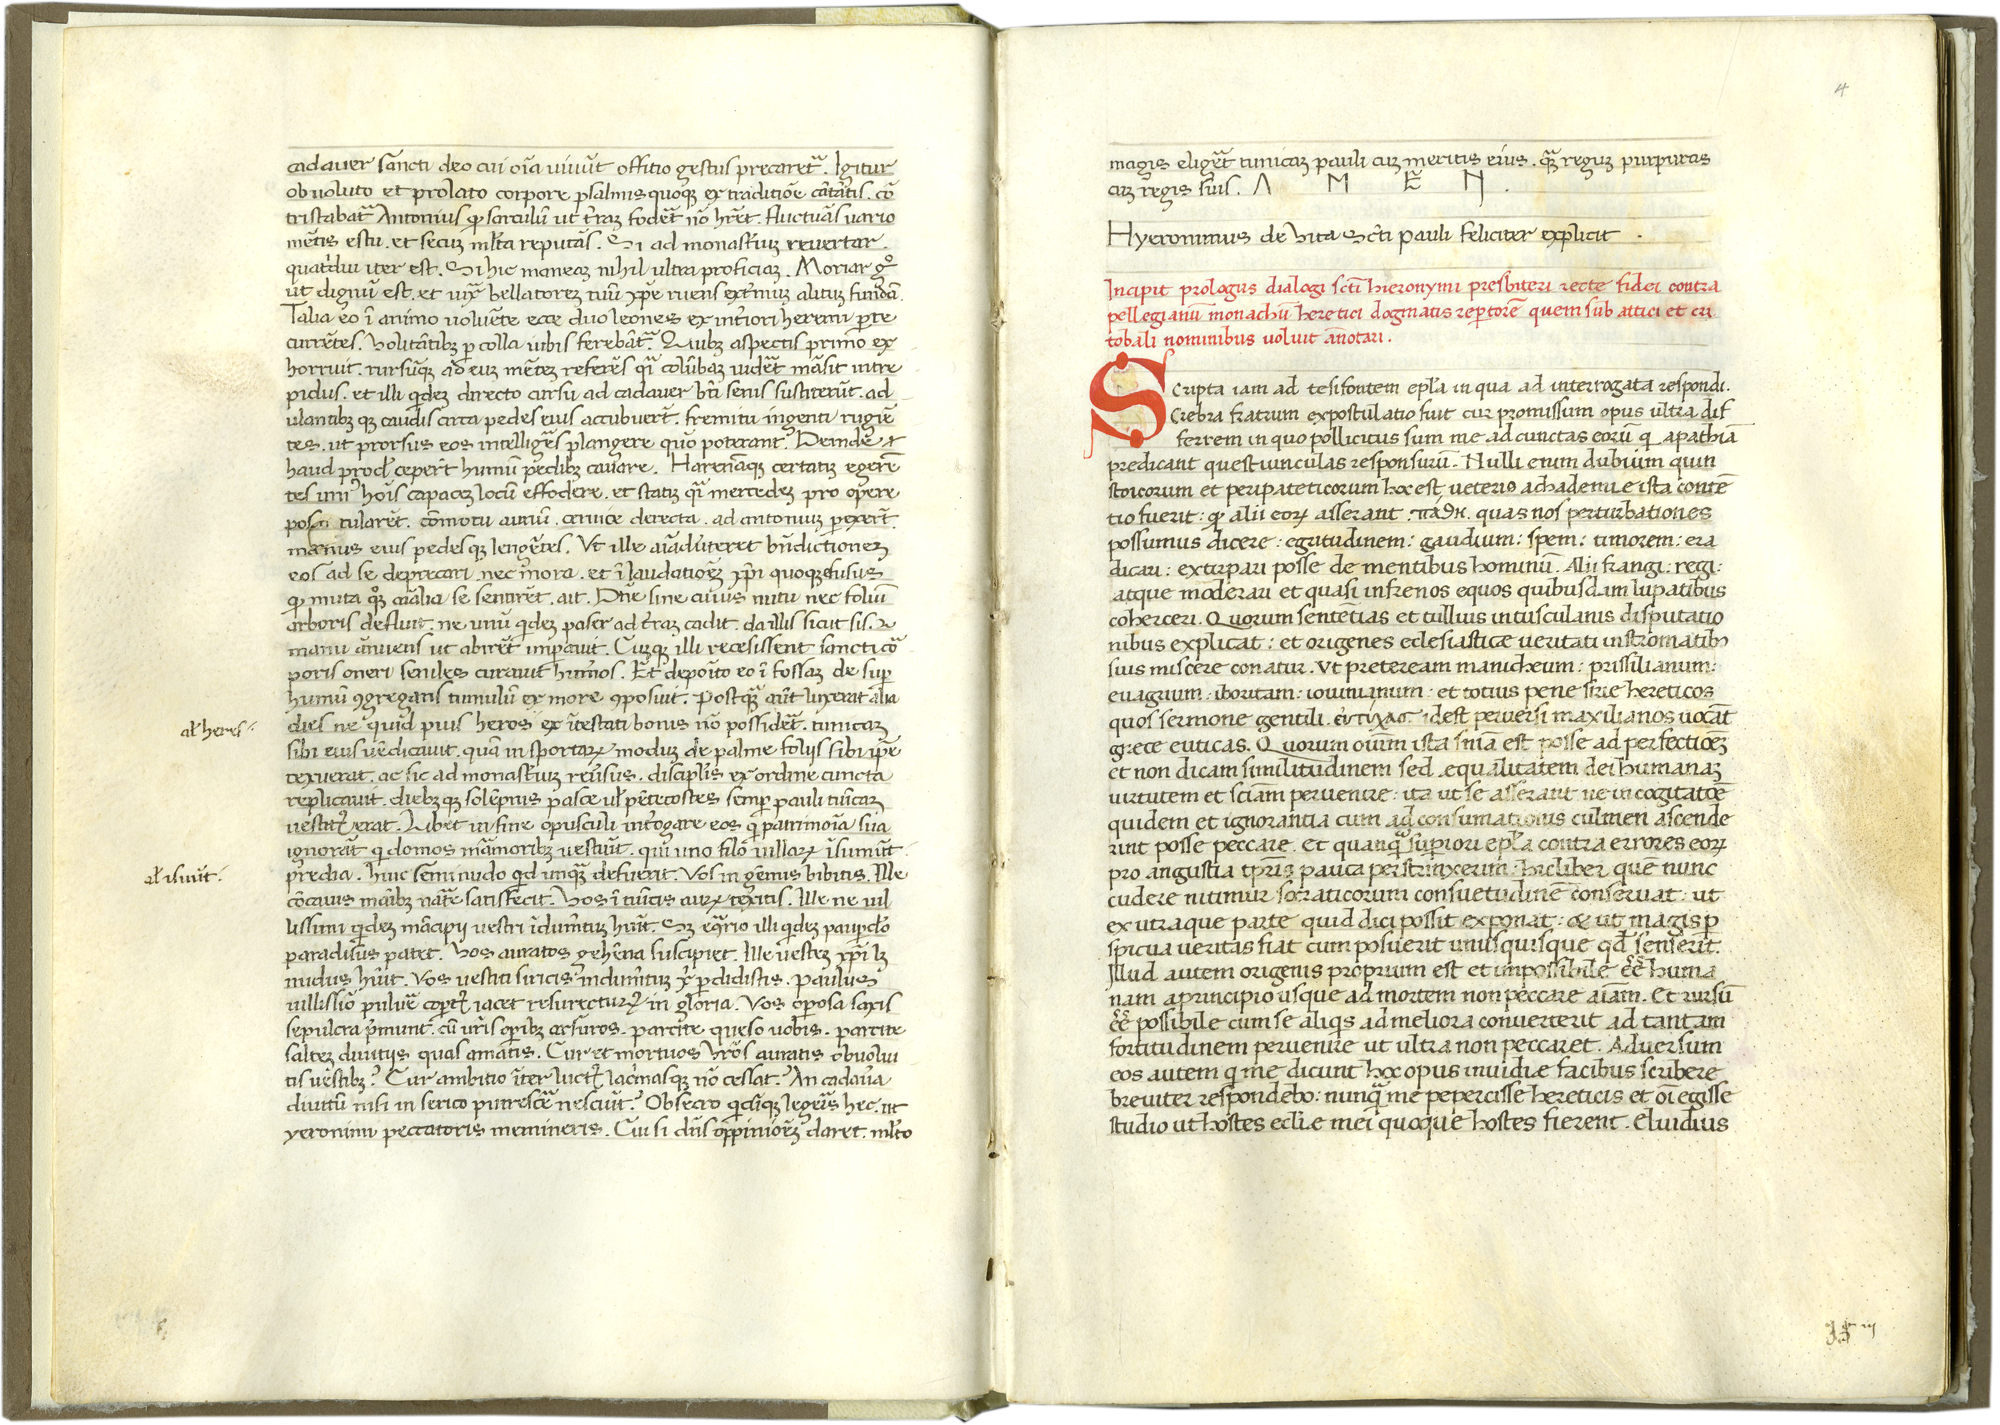 cadauer sancti deo cui oīa uiuūt offitio gestus precaret᷑. Igitur
obuoluto et prolato corpore psalmis quoqꝫ ex traditiōe cātātis. cō
tristabat᷑ Antonius ꝙ sarculū ut t̄raꝫ foderꝫ nō hr̄et. fluctuās uario
mētis estu. et secuꝫ ml̄ta reputās. Si ad monast̄iuꝫ reuertar.
quatͥdui iter est. Si hic maneaꝫ nihil ultra proficiaꝫ. Moriar gͦ
ut dignū est. et iuxͣ bellatoreꝫ tuū xp̄e ruens ext̄muꝫ alituꝫ fundā.
Talia eo ī animo uoluēte ecce duo leones ex int̄iori heremi parte
currētes. uolitātibꝫ ꝑ colla iubis ferebāt᷑. Quibꝫ aspectis primo ex
horruit. rursūqꝫ ad euꝫ mētem referēs qͣi colūbas uidēt māsit intre
pidus. et illi qͥdeꝫ directo cursu ad cadauer bt̄i senis substiterūt. ad
ulantibꝫ qꝫ caudis circa pedes eius accubuerūt. fremitu ingenti rugiē
tes. ut prorsus eos intelligēs plangere quō poterant. Deinde
haud procl̄ ceperūt humū pedibꝫ cauare. Harenāqꝫ certatiꝫ egerē
tes uniͥ hoīs capaceꝫ locū effodere. et statiꝫ qͣi mercedeꝫ pro opere
postularēt. cōmotu auriū. ceruice deiecta. ad antoniuꝫ ꝑrexerūt.
manus eius pedesqꝫ lengētes. Vt ille aīaduerteret bn̄dictioneꝫ
eos ad se deprecari. nec mora. et ī laudationeꝫ xp̄i quoqꝫ effusus
ꝙ muta quoqꝫ aīalia se sentirēt. ait. Dn̄e sine cuius nutu nec foliū
arboris defluit. ne unū qͥdeꝫ paser ad t̄raꝫ cadit. da illis sicut sis. Et
manu annuens ut abirēt imꝑauit. Cuꝫqꝫ illi recesissent sancti cor
poris oneri seniles curauit humos. Et deposito eo ī fossaꝫ de sup̄
humū ꝯgregans tumulū ex more ꝯposuit. Postqͣ aūt luxerat alia
dies ne quid pius heros ex īntestati bonis nō possiderꝫ. tunicaꝫ
al' heres:
sibi eius uēdicauit. quā in sportaꝝ modum de palme folijs sibi ip̄e
texuerat. ac sic ad monast̄iuꝫ reūsus. discipl̄is ex ordine cuncta
replicauit. diebꝫqꝫ solēpnis pasce ul̄ pētecostes semꝑ pauli tunicaꝫ
uestit᷑ erat. Libet in fine opusculi int̄rogare eos qͥ patrimoīa sua
ignorāt qͥ domos marmoribꝫ uestiūt. qui uno filo uillaꝝ īsumūt
predia. huic seminudo qͥd unqͣ defuerit. Vos in gēmis bibitis. Ille
al' isuūt:
cōcauis māibꝫ nāt̄e satisfecit. Vos ī tunicis auꝝ texitis. Ille ne uil
lissimi qͥdeꝫ mācipij uestri īdumētuꝫ hūit. Sꝫ eͨrario illi qͥdeꝫ paupͨlo
paradisus patet. Vos auratos gehēna suscipiet. Ille uestem xp̄i lꝫ
nudus hūit. Vos uestiti siricis indumētuꝫ xp̄i perdidistis. Paulus
uillissiō puluē coꝑt᷑ iacet resurecturꝰ in gloria. Vos oꝑosa saxis
sepulcra p̄munt. cū ur̄is oꝑibꝫ arsuros. parcite queso uobis. parcite
salteꝫ diuitijs quas amatis. Cur et mortuos ur̄os auratis obuolui
tis uestibꝫ? Cur ambitio īter luctꝰ lacrimasqꝫ nō cessat? An cadauera
diuitū nisi in serico putrescere nesciūt? Obsecro qͥcūqꝫ legeris hec. ut
yeronimi peccatoris memineris. Cui si dn̄s oppinioneꝫ daret. ml̄to
4
magis eligeret tunicaꝫ pauli cuꝫ meritis eius. qͣ regum purpuras
cuꝫ regis suis. A M E N.
Hyeronimus de Vita Sc̄ti pauli feliciter explicit .
Incipit prologus dialogi sc̄ti hieronymi presbiteri recte fidei contra
pellegianū monachū heretici dogmatis reꝑtorē quem sub attici et cri
tobali nominibus uoluit annotari.
Scripta iam ad tesifontem epl̄a in qua ad interrogata respondi.
Crebra fratrum expostulatio fuit cur promissum opus ultra dif
ferrem in quo pollicitus sum me ad cunctas eorū qͥ apathiā
predicant questiunculas responsurū. Nulli enim dubium quin
stoicorum et peripateticorum hoc est ueteris achademie ista contē
tio fuerit: ꝙ alii eoꝝ asserant .πάθη. quas nos perturbationes
possumus dicere: egritudinem: gaudium: spem: timorem: era
dicari: extirpari posse de mentibus hominū. Alii frangi: regi:
atque moderari et quasi infrenos equos quibusdam lupatibus
coherceri. Quorum sentētias et tullius in tusculanis disputatio
nibus explicat: et origenes eclesiastice ueritati in stromatibꝫ
suis miscere conatur. Vt preteream manicheum: prissilianum:
euagrium: iboritam: iouinianum: et totius pene sirie hereticos
quos sermone gentili idest peruersi maxilianos uocāt
grece euticas. Quorum omīum ista sn̄ia est posse ad perfectioēꝫ
et non dicam similitudinem sed equalitatem dei humanaꝫ
uirtutem et sciām peruenire: ita ut se asserant ne in cogitatiōe
quidem et ignorantia cum ad consumationis culmen ascende
rint posse peccare. et quanqͣ suꝑiori epl̄a contra errores eoꝝ
pro angustia tp̄ris pauca perstrinxerim: hic liber quē nunc
cudere nitimur socraticorum consuetudinē conseruat: ut
ex utraque parte quid dici possit exponat: & ut magis ꝑ
spicua ueritas fiat cum posuerit unusquisque qd̄ senserit.
Illud autem origenis proprium est et impossibile eē huma
nam a principio usque ad mortem non peccare aīam. Et rursū
eē possibile cum se aliqͥs ad meliora conuerterit ad tantam
fortitudinem peruenire ut ultra non peccaret. Aduersum
eos autem qͥ me dicunt hoc opus inuidie facibus scribere
breuiter respondebo: nunqͣ me pepercisse hereticis et oī egisse
studio ut hostes eclīe mei quoque hostes fierent. Eluidius